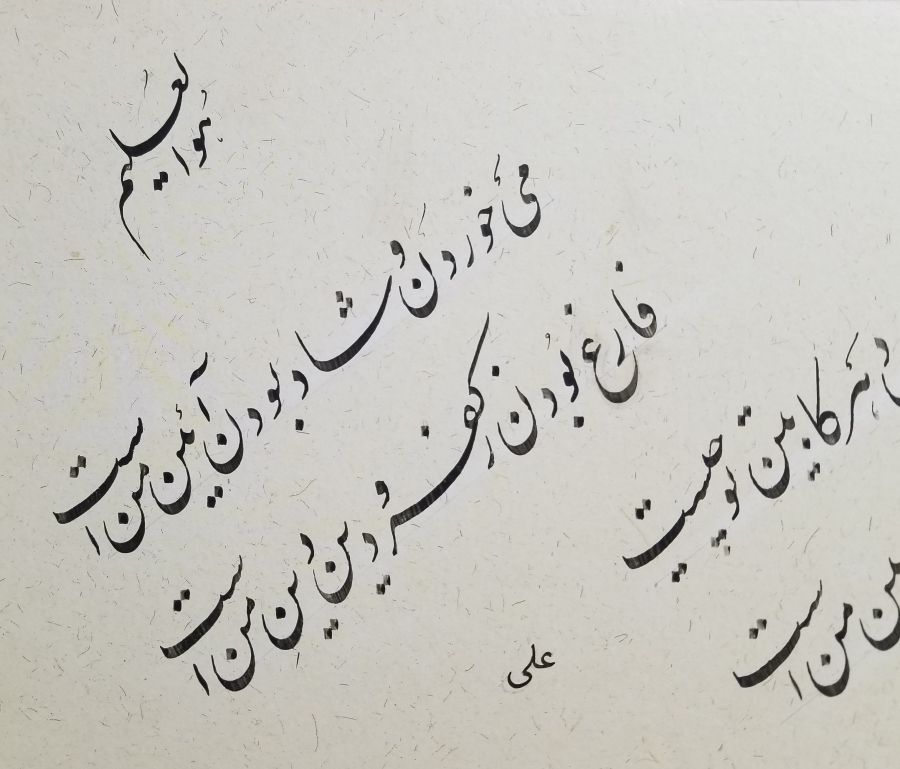 هوالعلیم
می خوردن و شاد بودن آئین من است
فارغ بودن ز کفر و دین دین من است
دهر کابین تو چیست
من است
علی